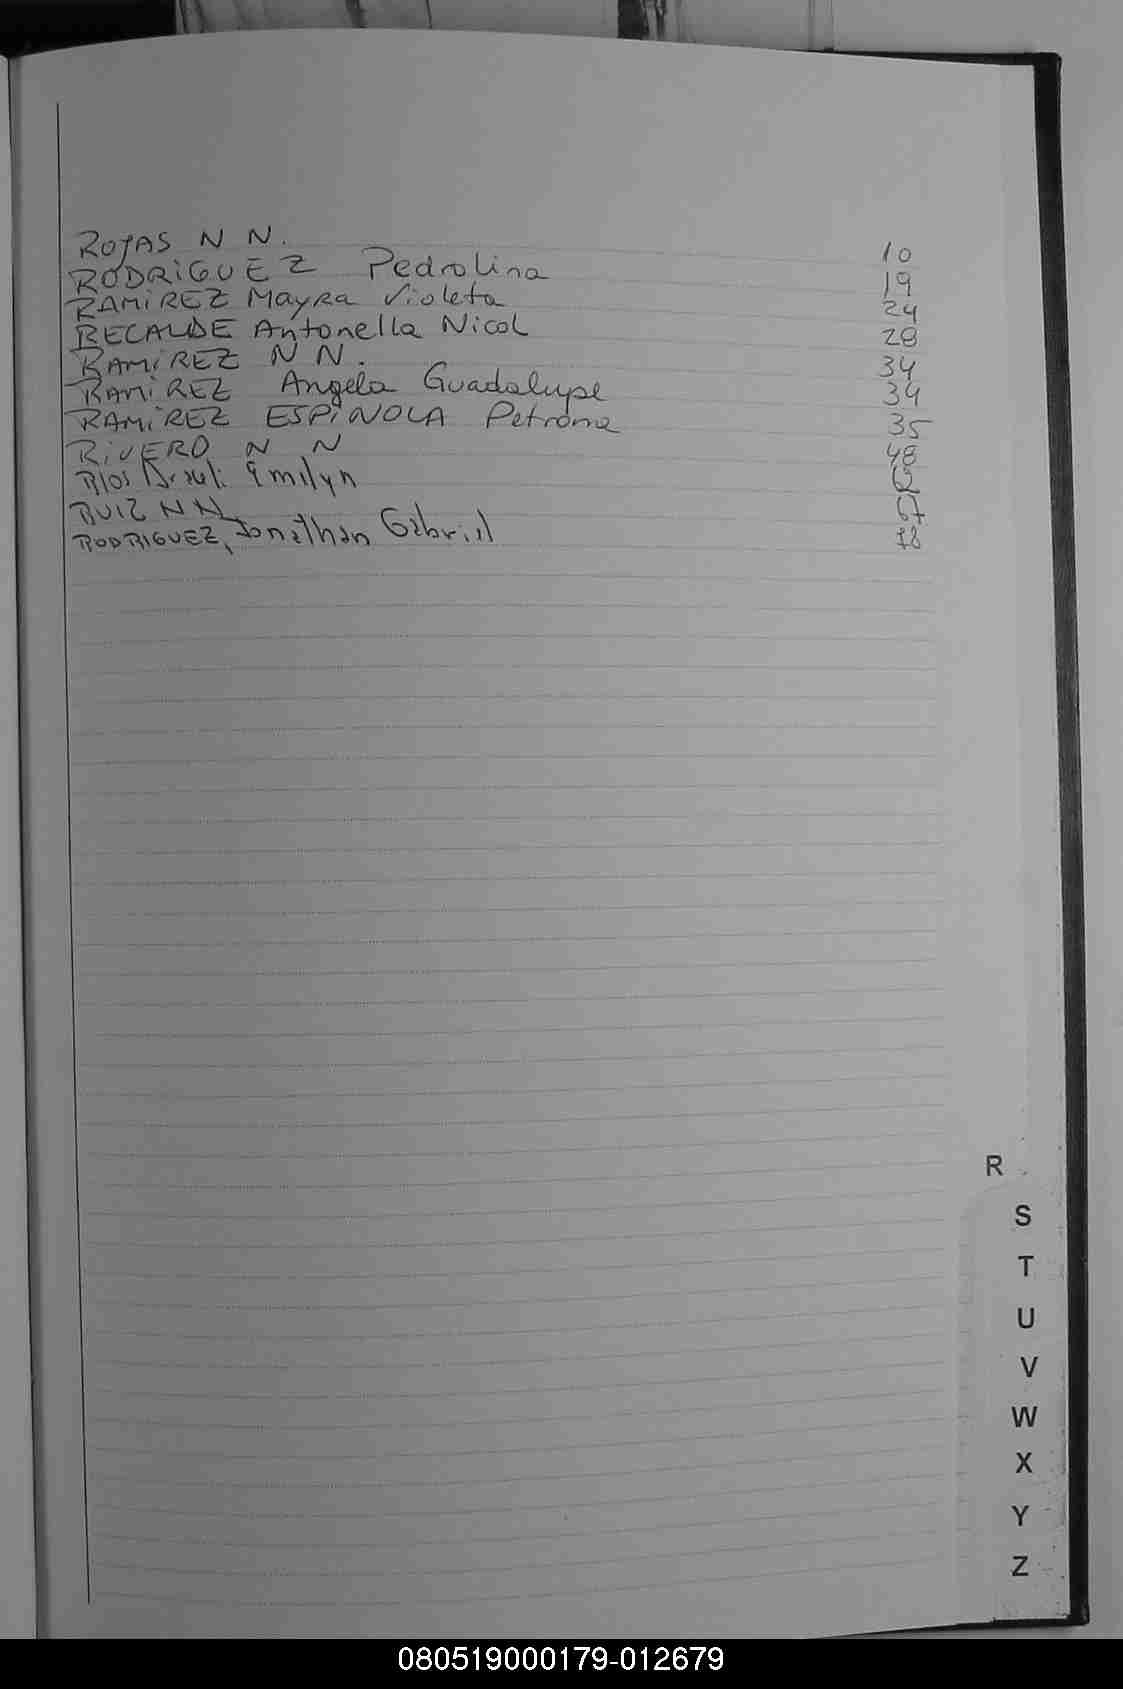 ROJAS N N. 10
RODRIGUEZ Pedrolina 19
RAMIREZ Mayra Violeta 24
RECALDE Antonella Nicol 28
RAMIREZ N N. 34
RAMIREZ Angela Guadalupe 34
RAMIREZ ESPINOLA Petrona 35
RIVERO N N 48
RIOS Emilyn 62
RUIZ NN 67
RODRIGUEZ, Jonathan Gabriel 78
R
S
T
U
V
W
X
Y
Z
080519000179-012679